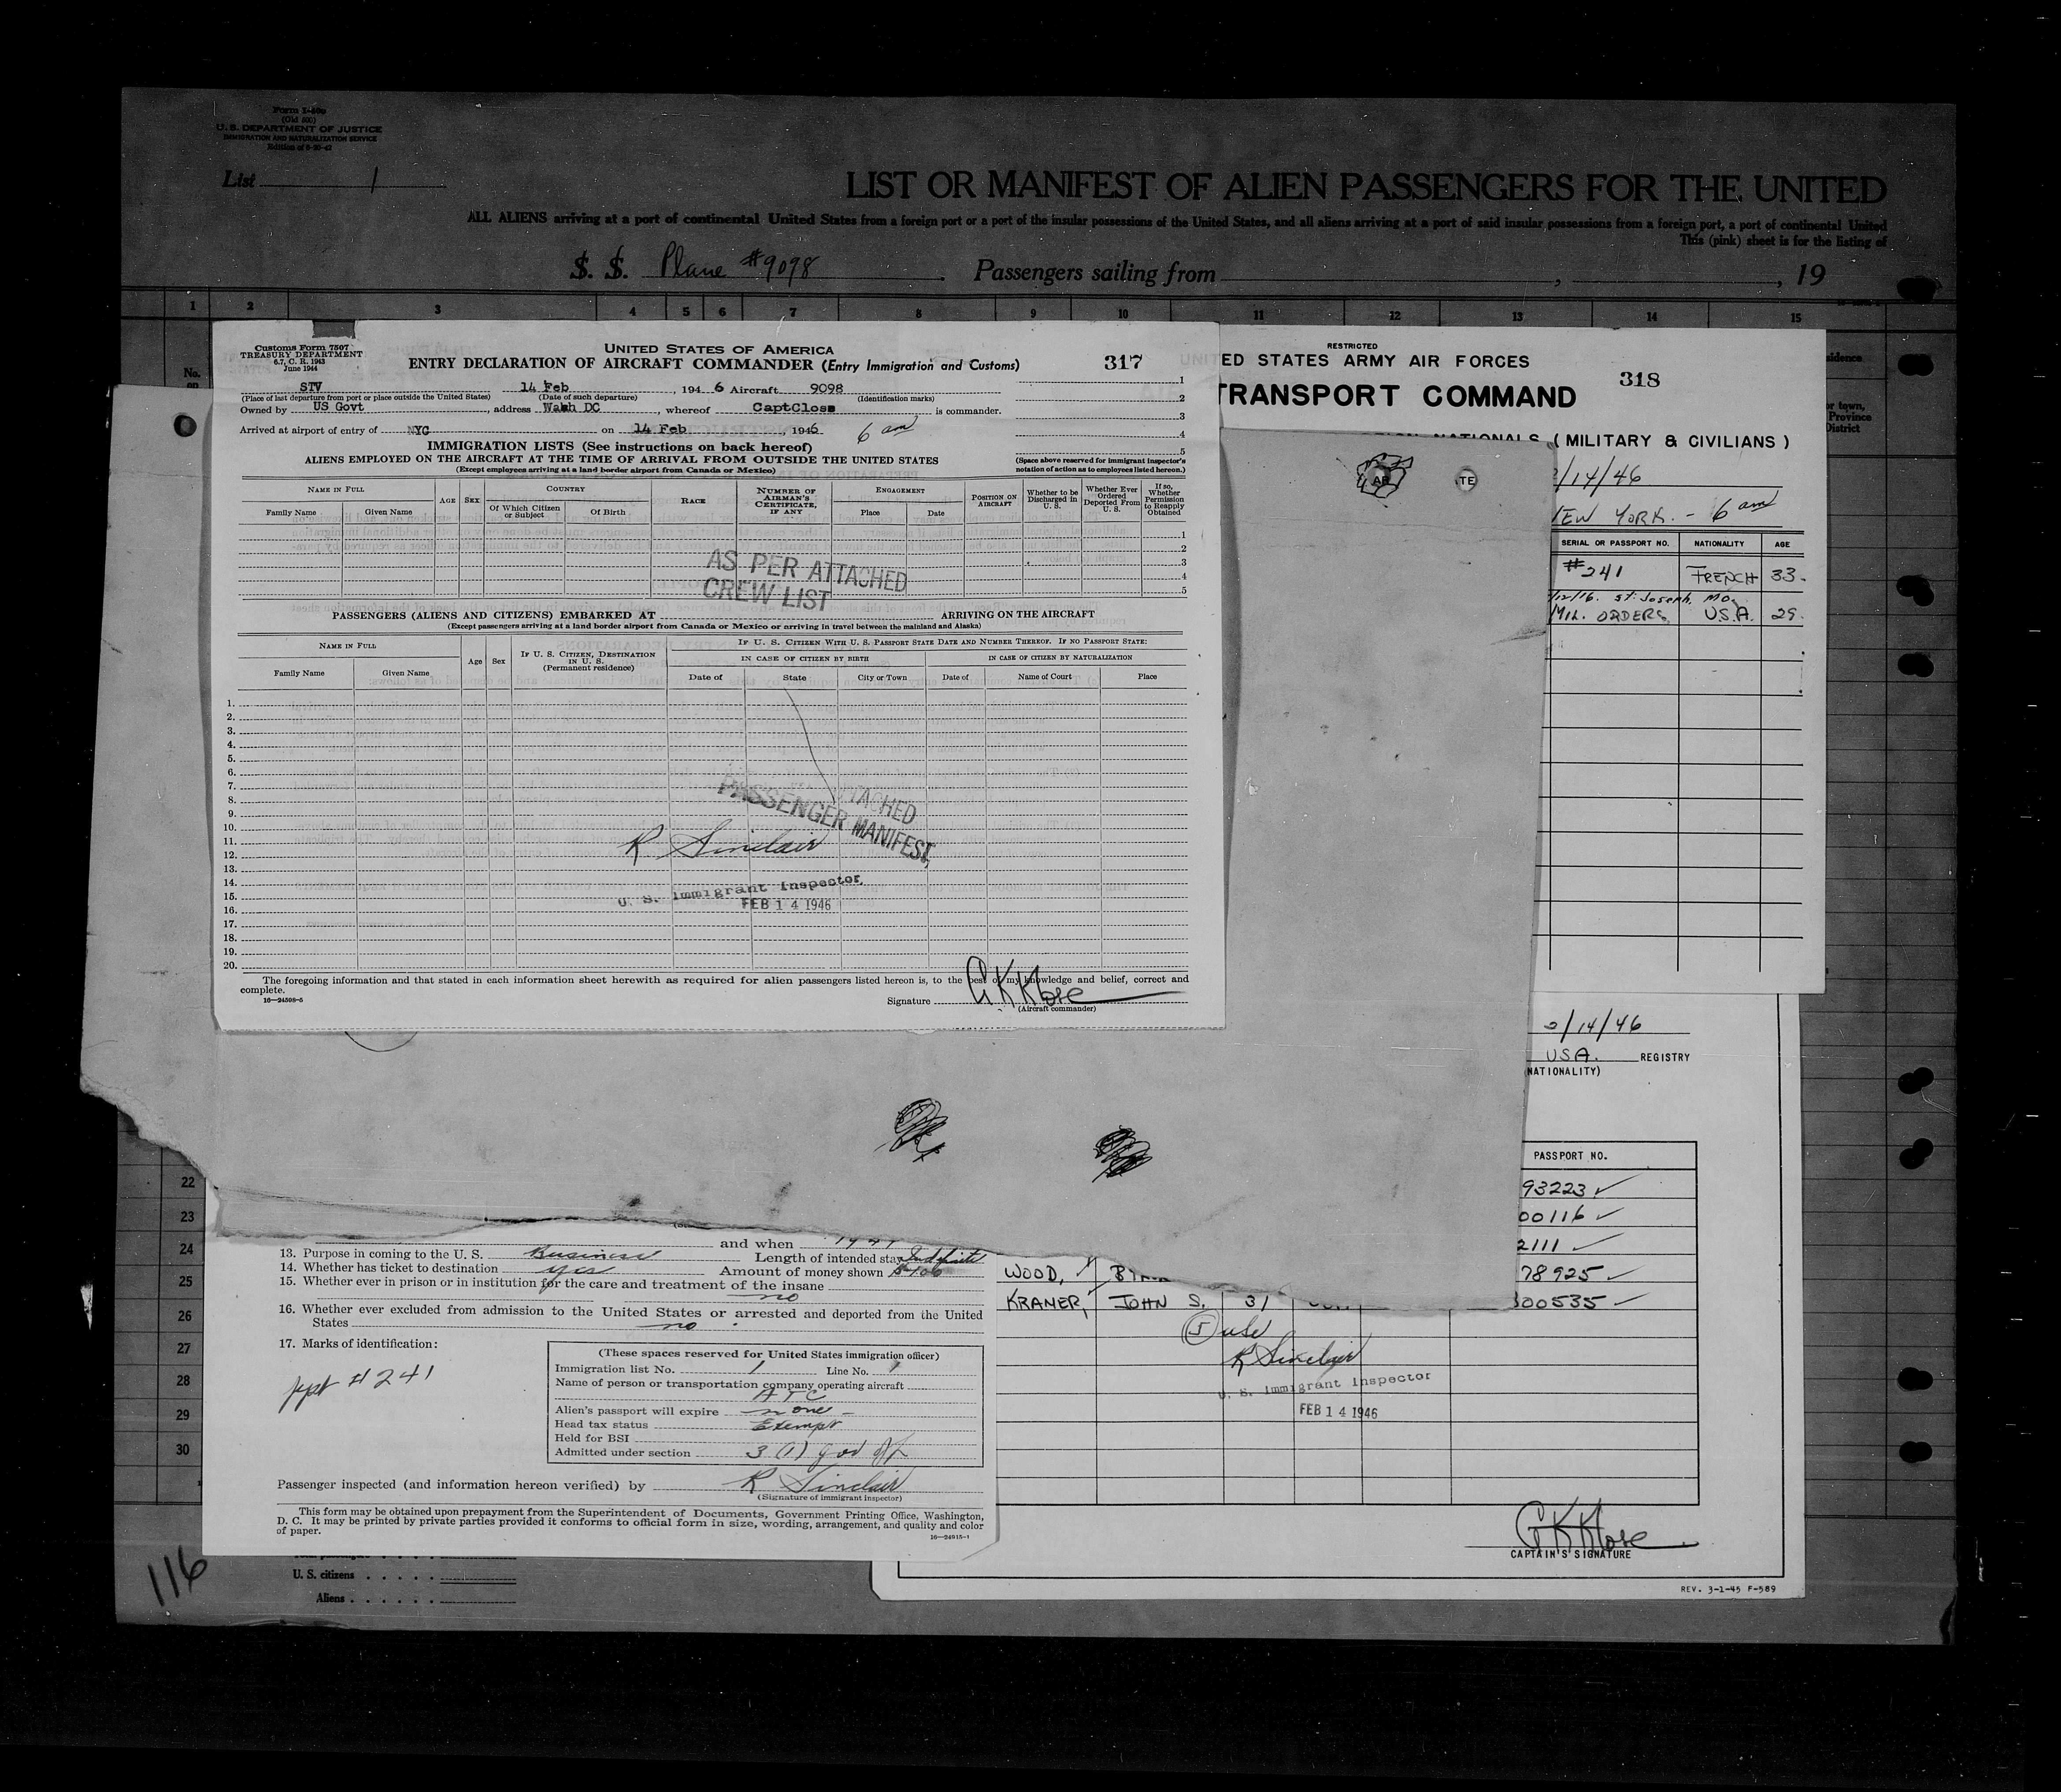 Form I-400
(Old 500)
U. S. DEPARTMENT OF JUSTICE
IMMIGRATION AND NATURALIZATION SERVICE
List 1
LIST OR MANIFEST OF ALIEN PASSENGERS FOR THE UNITED
ALL ALIENS arriving at a port of continental United States from a foreign port or a port of the insular possessions of the United States, and all aliens arriving at a port of said insular possessions from a foreign port, a port of continental United
This (pink) sheet is for the listing of
S. S. Plane #9098 Passengers sailing from , , 19
1 2 3 4 5 6 7 8 9 10 11 12 13 14 15
No.
Customs Form 7507
TREASURY DEPARTMENT
6.7, C. R. 1943
June 1944
UNITED STATES OF AMERICA
ENTRY DECLARATION OF AIRCRAFT COMMANDER (Entry Immigration and Customs)
317
STV 14 Feb , 194 6 Aircraft 9098
(Place of last departure from port or place outside the United States) (Date of such departure) (Identification marks)
Owned by US Govt , address Wash DC , whereof CaptClose is commander.
Arrived at airport of entry of NYC on 14 Feb , 1946 6 am
1
2
3
4
5
IMMIGRATION LISTS (See instructions on back hereof)
ALIENS EMPLOYED ON THE AIRCRAFT AT THE TIME OF ARRIVAL FROM OUTSIDE THE UNITED STATES
(Except employees arriving at a land border airport from Canada or Mexico)
(Space above reserved for immigrant inspector's
notation of action as to employees listed hereon.)
NAME IN FULL AGE SEX COUNTRY RACE NUMBER OF AIRMAN'S CERTIFICATE, IF ANY ENGAGEMENT POSITION ON AIRCRAFT Whether to be Discharged in U. S. Whether Ever Ordered Deported From U. S. If so, Whether Permission to Reapply Obtained
Family Name Given Name Of Which Citizen or Subject Of Birth Place Date
1
2
3
4
5
AS PER ATTACHED
CREW LIST
PASSENGERS (ALIENS AND CITIZENS) EMBARKED AT ARRIVING ON THE AIRCRAFT
(Except passengers arriving at a land border airport from Canada or Mexico or arriving in travel between the mainland and Alaska)
NAME IN FULL Age Sex IF U. S. CITIZEN, DESTINATION IN U. S. (Permanent residence) IF U. S. CITIZEN WITH U. S. PASSPORT STATE DATE AND NUMBER THEREOF. IF NO PASSPORT STATE:
IN CASE OF CITIZEN BY BIRTH IN CASE OF CITIZEN BY NATURALIZATION
Family Name Given Name Date of State City or Town Date of Name of Court Place
1.
2.
3.
4.
5.
6.
7.
8.
9.
10.
11.
12.
13.
14.
15.
16.
17.
18.
19.
20.
ATTACHED
PASSENGER MANIFEST
R Sinclair
U. S. Immigrant Inspector
FEB 14 1946
The foregoing information and that stated in each information sheet herewith as required for alien passengers listed hereon is, to the best of my knowledge and belief, correct and
complete.
16—24598-5
Signature G K Klose
(Aircraft commander)
RESTRICTED
ED STATES ARMY AIR FORCES
TRANSPORT COMMAND
318
NATIONALS (MILITARY & CIVILIANS)
/14/46
NEW YORK. - 6 am
SERIAL OR PASSPORT NO. NATIONALITY AGE
#241 FRENCH 33.
St. Joseph, Mo.
MIL. ORDERS. U.S.A. 29.
AB TE
2/14/46
USA. REGISTRY
(NATIONALITY)
PASSPORT NO.
93223
00116
2111
78925
300535
WOOD,
KRAMER, JOHN S. 31
5 USC
R Sinclair
U. S. Immigrant Inspector
FEB 14 1946
G K Klose
CAPTAIN'S SIGNATURE
REV. 3-1-45 F-589
22
23
24
25
26
27
28
29
30
and when 1941
13. Purpose in coming to the U. S. Business Length of intended stay Indefinite
14. Whether has ticket to destination yes Amount of money shown $100
15. Whether ever in prison or in institution for the care and treatment of the insane
no
16. Whether ever excluded from admission to the United States or arrested and deported from the United
States no
17. Marks of identification:
ppt #241
(These spaces reserved for United States immigration officer)
Immigration list No. 1 Line No. 1
Name of person or transportation company operating aircraft
ATC
Alien's passport will expire none
Head tax status Exempt
Held for BSI
Admitted under section 3 (1) gov off
Passenger inspected (and information hereon verified) by R Sinclair
(Signature of immigrant inspector)
This form may be obtained upon prepayment from the Superintendent of Documents, Government Printing Office, Washington,
D. C. It may be printed by private parties provided it conforms to official form in size, wording, arrangement, and quality and color
of paper.
16—24915-1
116
U. S. citizens
Aliens